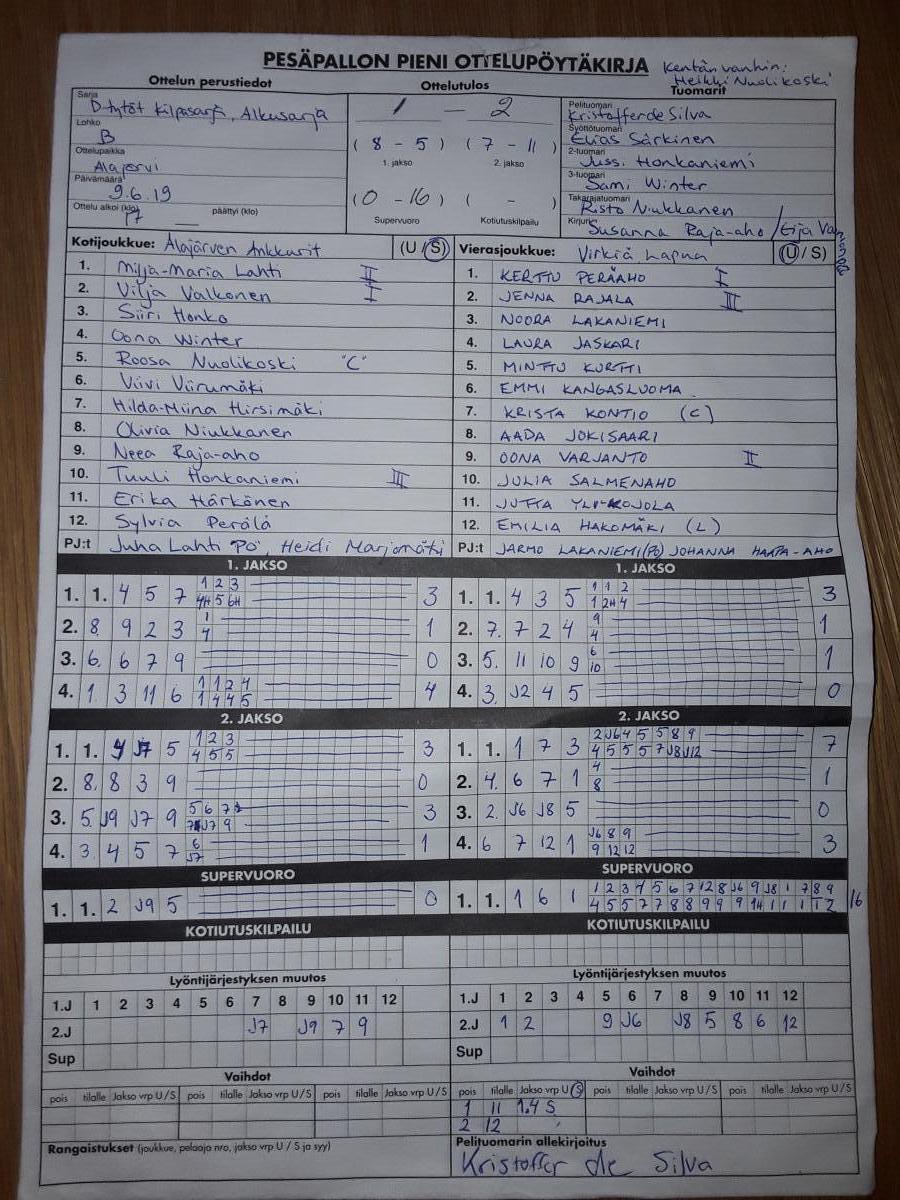 PESÄPALLON PIENI OTTELUPÖYTÄKIRJA
Kentän vanhin:
Heikki Nuolikoski
Ottelun perustiedot
Ottelutulos
Tuomarit
Sarja
D-tytöt Kilpasarja, Alkusarja
Lohko
B
Ottelupaikka
Alajärvi
Päivämäärä
9.6.19
Ottelu alkoi (klo) 17 päättyi (klo)
1 – 2
(8 - 5) (7 - 11)
1. jakso 2. jakso
(0 - 16) ( - )
Supervuoro Kotiutuskilpailu
Pelituomari
Kristoffer de Silva
Syöttötuomari
Elias Särkinen
2-tuomari
Jussi Honkaniemi
3-tuomari
Sami Winter
Takarajatuomari
Risto Niukkanen
Kirjuri
Susanna Raja-aho / Eija
Kotijoukkue: Alajärven Ankkurit (U / S)
1. Milja-Maria Lahti II
2. Vilja Valkonen I
3. Siiri Honko
4. Oona Winter
5. Roosa Nuolikoski "C"
6. Viivi Viirumäki
7. Hilda-Miina Hirsimäki
8. Olivia Niukkanen
9. Neea Raja-aho
10. Tuuli Honkaniemi III
11. Erika Härkönen
12. Sylvia Perälä
PJ:t Juha Lahti "PÖ", Heidi Marjomäki
Vierasjoukkue: Virkiä Lapua (U / S)
1. KERTTU PERÄAHO I
2. JENNA RAJALA III
3. NOORA LAKANIEMI
4. LAURA JASKARI
5. MINTTU KURTTI
6. EMMI KANGASLUOMA
7. KRISTA KONTIO (C)
8. AADA JOKISAARI
9. OONA VARJANTO II
10. JULIA SALMENAHO
11. JUTTA YLI-KOJOLA
12. EMILIA HAKOMÄKI (L)
PJ:t JARMO LAKANIEMI (PÖ) JOHANNA HAAPA-AHO
1. JAKSO
1. 1. 4 5 7 1 2 3 3
4H 5 6H
2. 8. 9 2 3 1 1
4
3. 6. 6 7 9 0
4. 1. 3 11 6 1 1 2 4 4
1 4 4 5
1. JAKSO
1. 1. 4 3 5 1 1 2 3
1 2H 4
2. 7. 7 2 4 9 1
4
3. 5. 11 10 9 6 1
10
4. 3. J2 4 5 0
2. JAKSO
1. 1. J7 5 1 2 3 3
4 5 5
2. 8. 8 3 9 0
3. 5. J9 J7 9 5 6 7 3
J7 9
4. 3. 4 5 7 6 1
J7
2. JAKSO
1. 1. 1 7 3 2 J6 4 5 5 8 9 7
4 5 5 5 7 J8 J12
2. 4. 6 7 1 4 1
8
3. 2. J6 J8 5 0
4. 6 7 12 1 J6 8 9 3
9 12 12
SUPERVUORO
1. 1. 2 J9 5 0
SUPERVUORO
1. 1. 1 6 1 1 2 3 4 5 6 7 12 8 J6 9 J8 1 7 8 9 16
4 5 5 7 7 8 8 9 9 9 1 1 1 2
KOTIUTUSKILPAILU
KOTIUTUSKILPAILU
Lyöntijärjestyksen muutos
1.J 1 2 3 4 5 6 7 8 9 10 11 12
2.J J7 J9 7 9
Sup
Lyöntijärjestyksen muutos
1.J 1 2 3 4 5 6 7 8 9 10 11 12
2.J 1 2 9 J6 J8 5 8 6 12
Sup
Vaihdot
pois tilalle Jakso vrp U / S pois tilalle Jakso vrp U / S pois tilalle Jakso vrp U / S
Vaihdot
pois tilalle Jakso vrp U / S pois tilalle Jakso vrp U / S pois tilalle Jakso vrp U / S
1 11 1.4 S
2 12
Rangaistukset (joukkue, pelaaja nro, jakso vrp U / S ja syy)
Pelituomarin allekirjoitus
Kristoffer de Silva